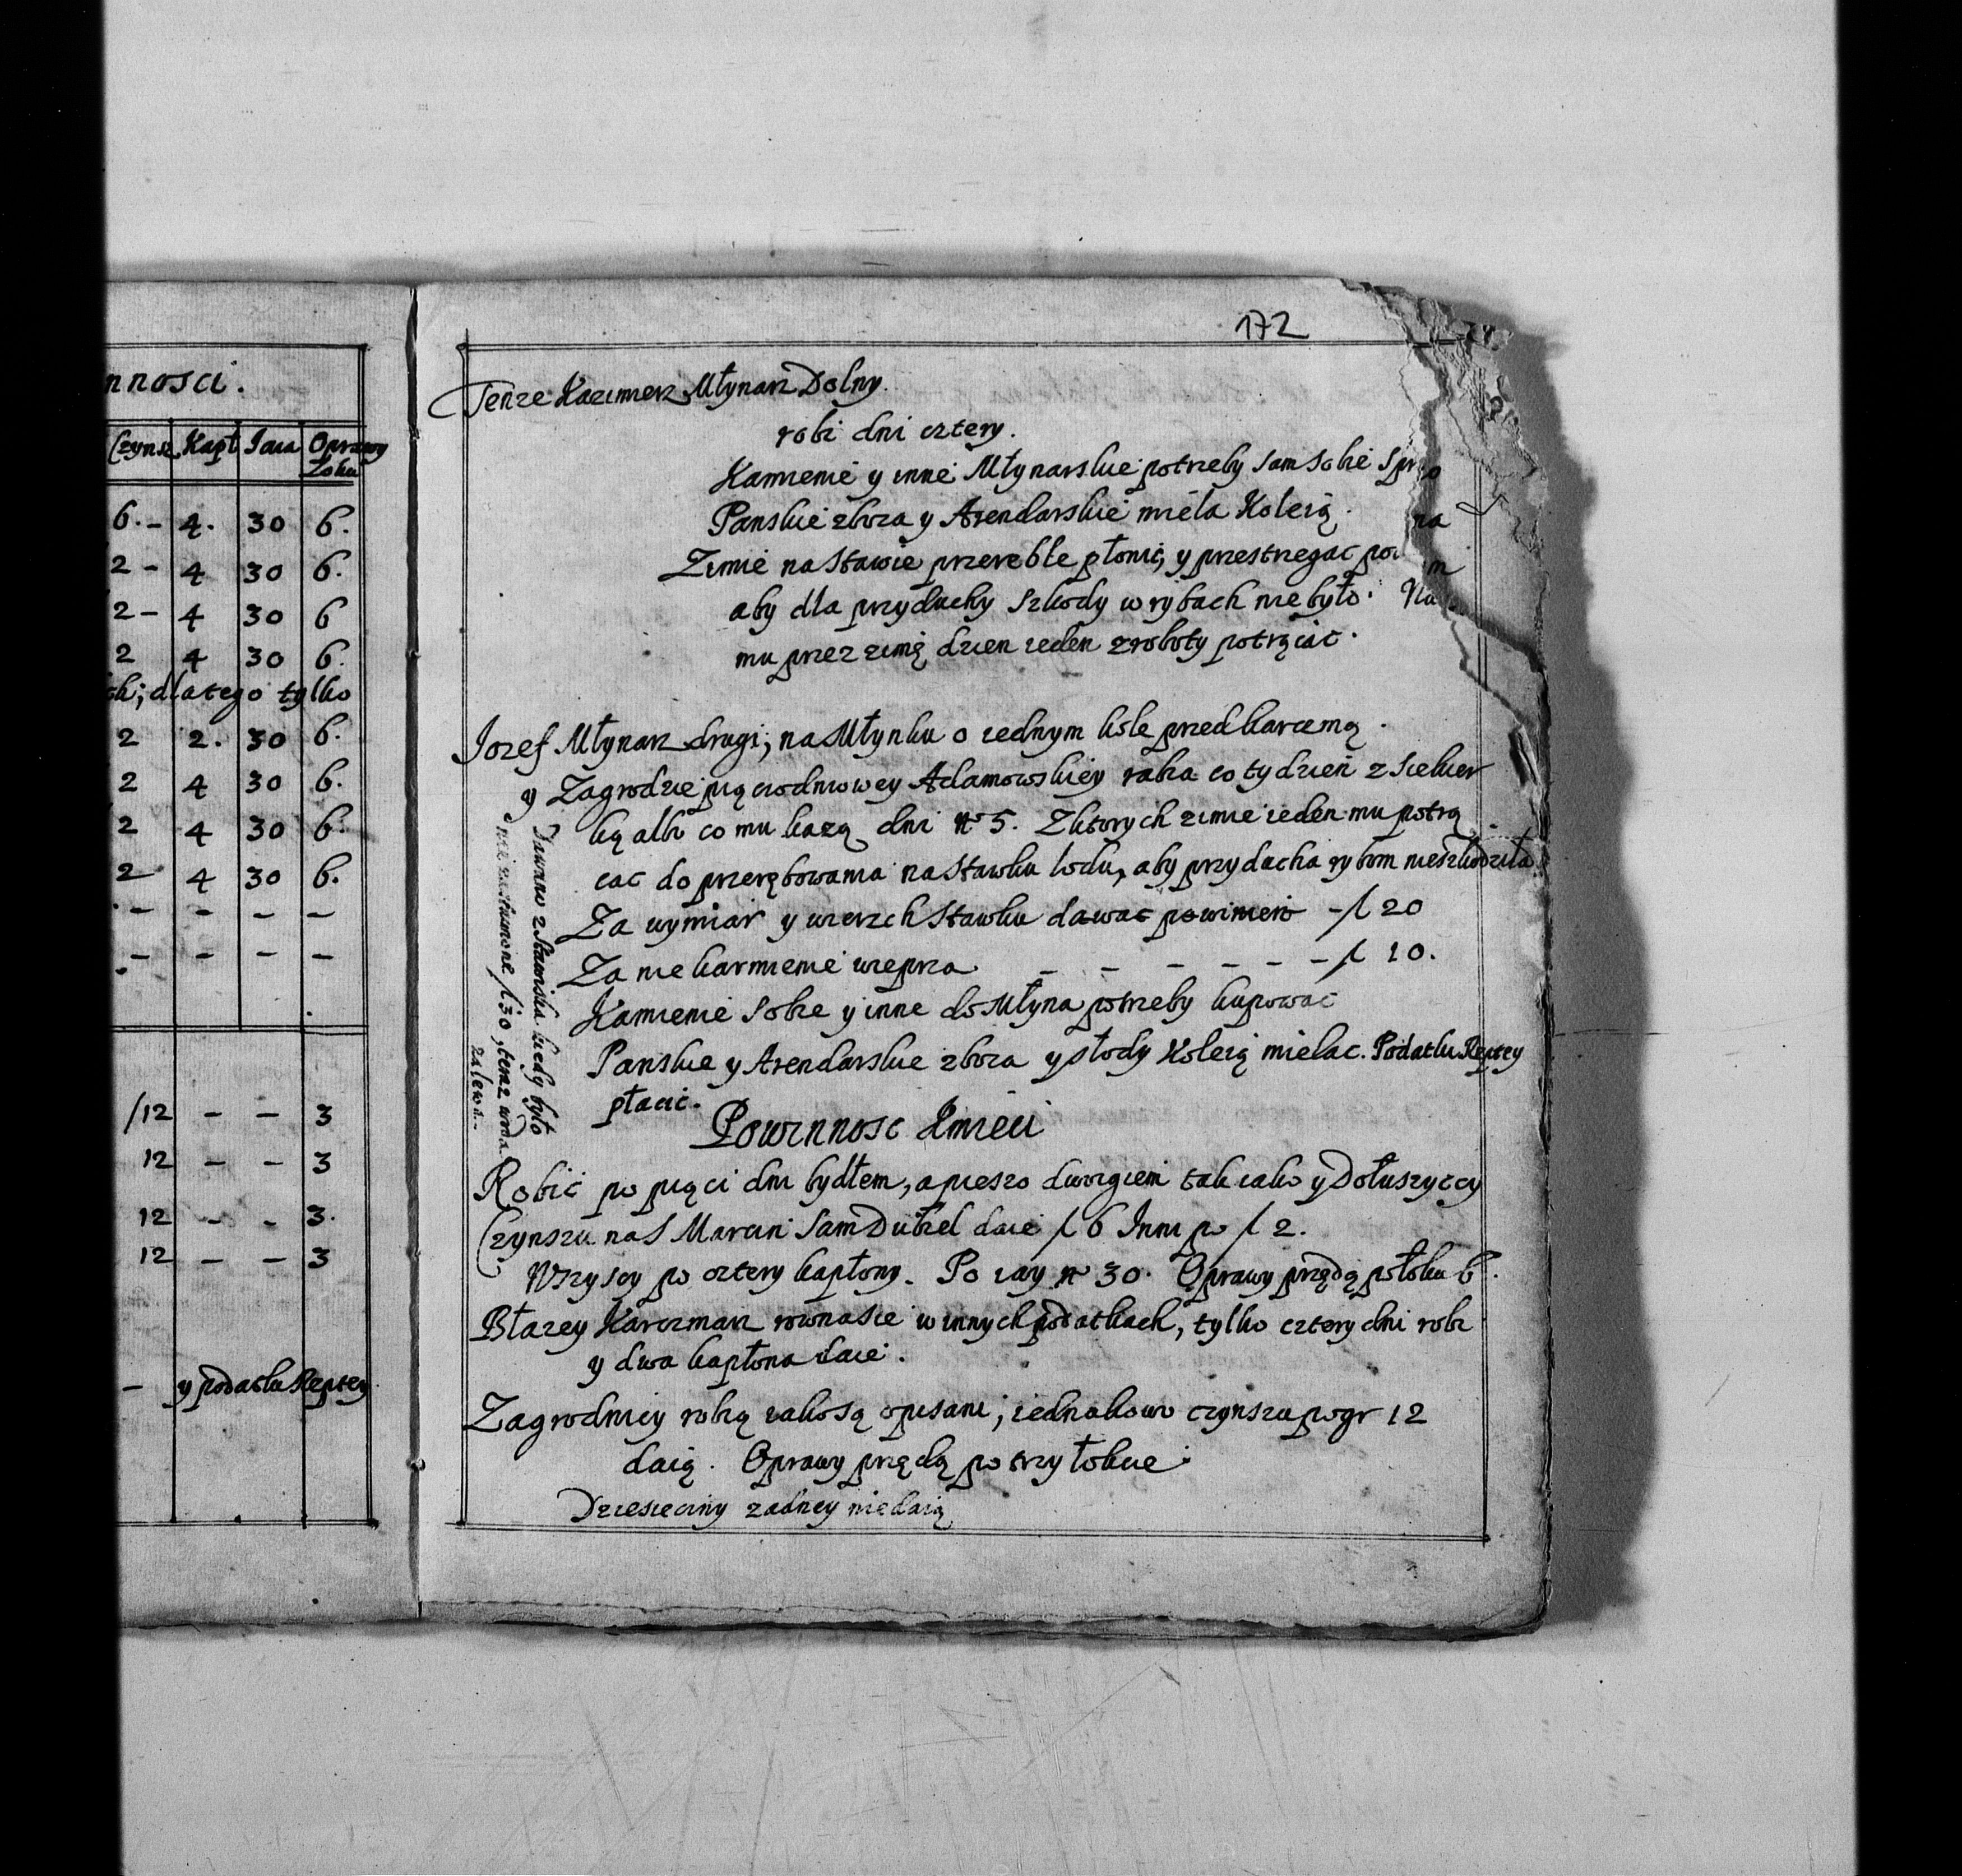 nnosci.
Czynsz Kapł Iaia Oprawy
Łoku
6.- 4. 30 6.
2- 4 30 6.
2- 4 30 6
2 4 30 6.
dlatego tylko
2 2. 30 6.
2 4 30 6.
2 4 30 6.
2 4 30 6.
- - - -
- - - -
/12 - - 3
12 - - 3
12 - - 3.
12 - - 3
- y podatku Reptey
172
Tenze Kazimierz Młynarz Dolny.
robi dni cztery.
Kamienie y inne Młynarskie potrzeby sam sobie
Panskie zboza y Arendarskie miela Koleią. na
Zimie na Stawie przereble płonić, y przestrzegac
aby dla przyduchy szkody w rybach nie było.
mu przez zimę dzien ieden z roboty potrącic.
Iozef Młynarz drugi, na Młynku o iednym kole przed karczmą.
y Zagrodzie pięciodniowey Adamowskiey rabia co tydzień z siekier
ką albo co mu kazą dni No 5. Z ktorych zimie ieden mu potrą
cac do przerębowania na Stawku lodu, aby przyducha rybom nieszkodziła.
Za wymiar y wierzch Stawku dawac powinien - f 20
Za nie karmienie wieprza - - - - - - f 10.
Kamienie sobie y inne do Młyna potrzeby kupowac
Panskie y Arendarskie zboza y słody Koleią mielac. Podatku Reptey
płacic.
Dawano z Stawiska kiedy było
nie zastawione f 30, teraz woda
zalewa.
Powinnosc Kmieci
Robić po pięci dni bydłem, a pieszo dwoygiem tak iako y Dołuszyccy
Czynszu na S Marcin Sam Dubiel daie f 6 Inni po f 2.
Wszyscy po cztery kapłony. Po iay No 30. Oprawy przędą po łoku 6.
Błazey Karczmarz rownasie w innych podatkach, tylko cztery dni robi
y dwa kapłona daie.
Zagrodnicy robią iako są opisani; iednakowo czynszu po gr 12
daią. Oprawy przędą po trzy łokcie.
Dziesieciny zadney nie daią